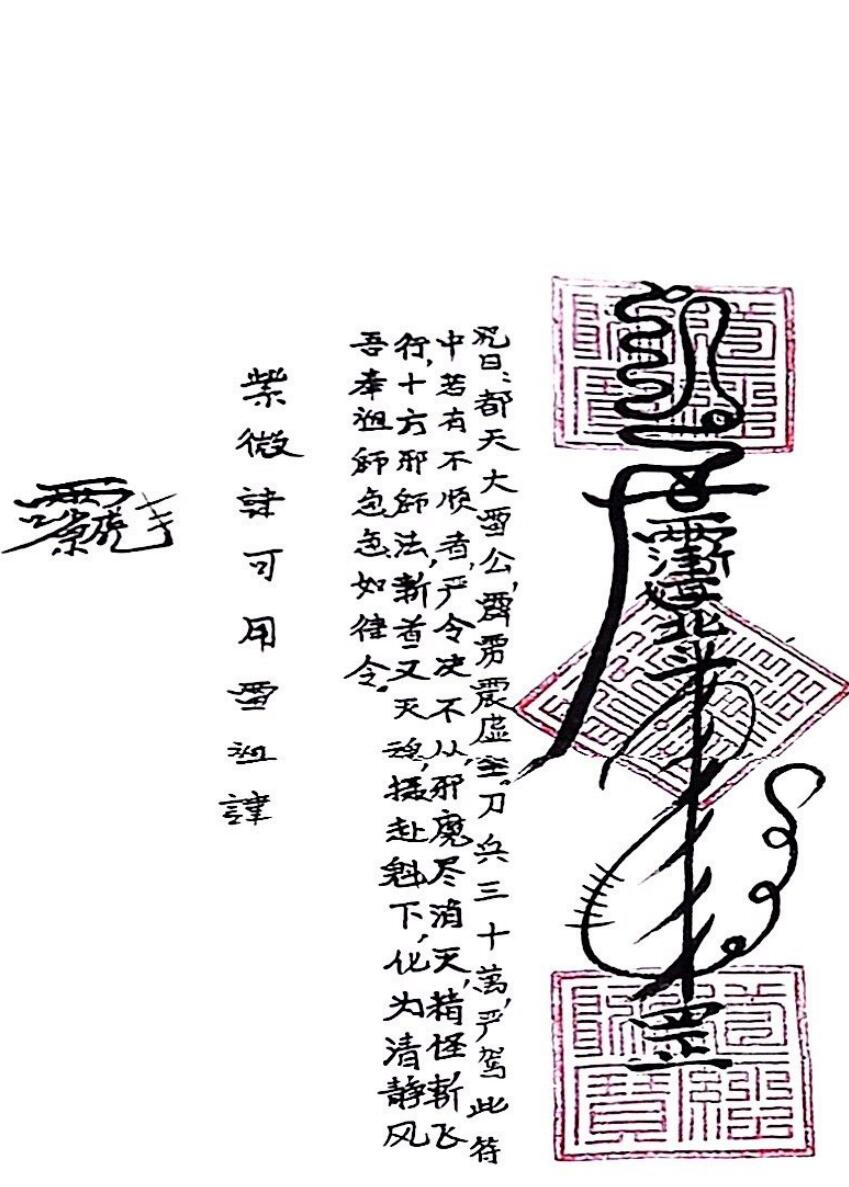 咒曰：都天大雷公，霹雳震虚空。刀兵三十萬，严驾此符
中若有不顺者，严令决不从，邪魔尽消灭，精怪斩飞
行，十方邪师法，斩首又灭魂，摄赴魁下，化为清静风
吾奉祖师急急如律令。
紫微諱可用雷祖諱